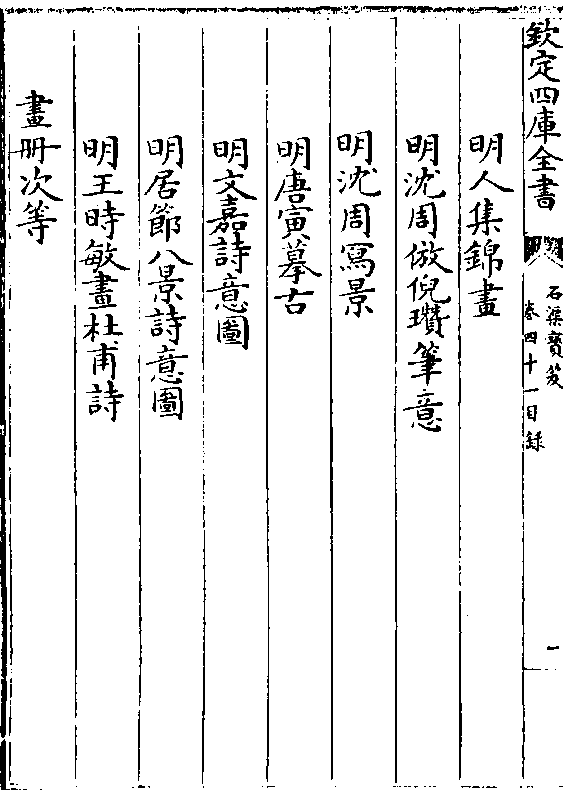 欽定四庫全書
石渠寳笈
卷四十一目録
一
明人集錦畫
明沈周倣倪瓚筆意
明沈周寫景
明唐寅摹古
明文嘉詩意圖
明居節八景詩意圖
明王時敏畫杜甫詩
畫冊次等